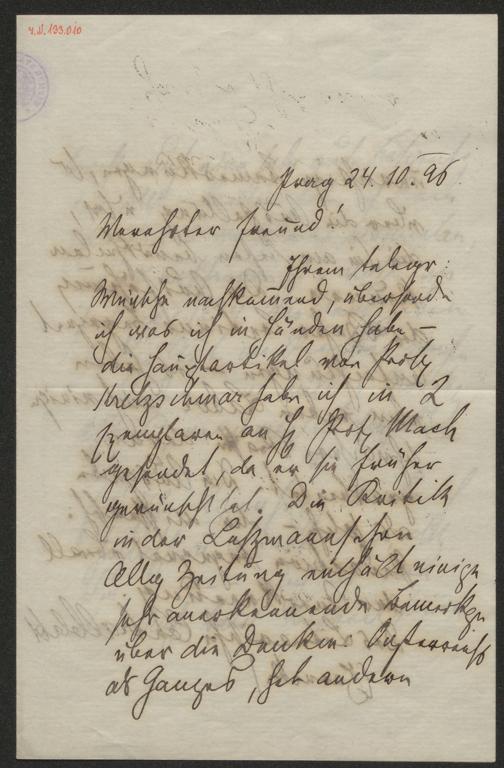 4.W.133.010
Prag 24. 10. 96
Verehrter Freund!
Ihrem telegr:
Wunsche nachkommend, übersende
ich was ich in Händen habe –
die Hauptartikel von Prof
Kretzschmar habe ich in 2
Exemplaren an H Prof. Mach
gesendet, da er sie früher
gewünscht hat. Die Kritik
in der
Allg Zeitung enthält einige
sehr anerkennende Bemerkgn
über die Denkm. Österreichs
als Ganzes, hat andern